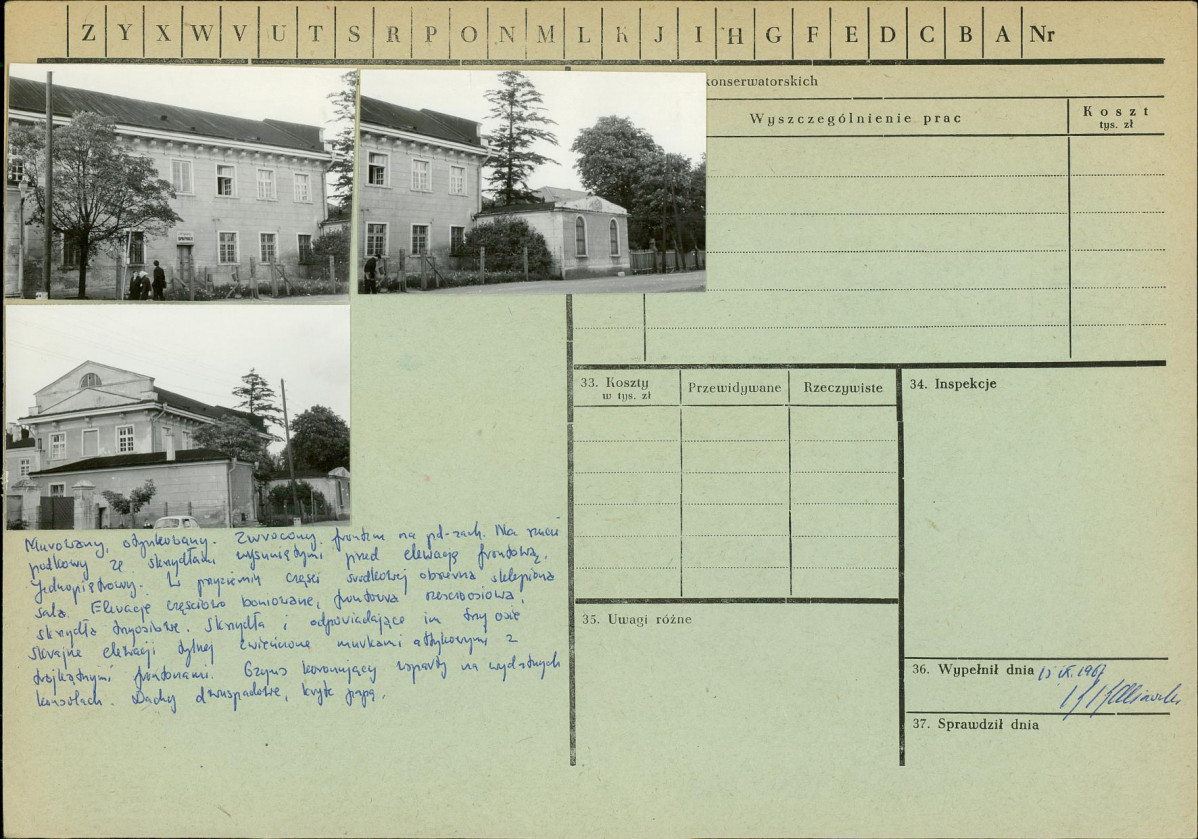 Z Y X W V U T S R P O N M L K J I H G F E D C B A Nr
konserwatorskich
Wyszczególnienie prac
Koszt
tys. zł
33. Koszty
w tys. zł
Przewidywane
Rzeczywiste
34. Inspekcje
Murowany, otynkowany. Zwrócony frontem na pd-zach. Na rzucie
podkowy ze skrzydłami wysuniętymi przed elewację frontową.
Jednopiętrowy. W przyziemiu części środkowej obszerna sklepiona
sala. Elewacje częściowo boniowane, frontowa sześcioosiowa,
skrzydła trzyosiowe. Skrzydła i odpowiadające im trzy osie
skrajne elewacji tylnej zwieńczone murkami attykowymi z
trójkątnymi frontonami. Gzyms koronujący wsparty na wydatnych
konsolach. Dachy dwuspadowe, kryte papą.
35. Uwagi różne
36. Wypełnił dnia 15 IX. 1967
37. Sprawdził dnia